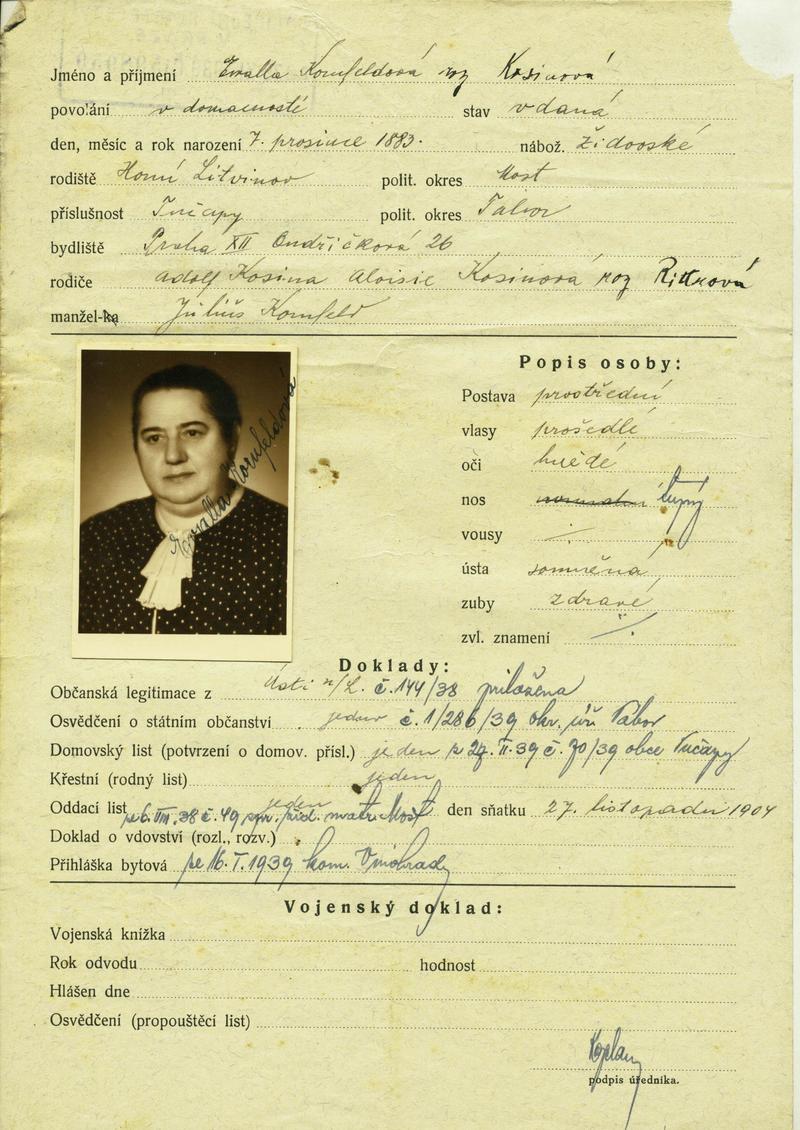 Jméno a příjmení Kornfeldová roz Kosinová
povolání v domacnosti stav vdaná
den, měsíc a rok narození 7. prosince 1883. nábož. židovské
rodiště Horní Litvinov polit. okres Most
příslušnost Tučapy polit. okres Tabor
bydliště Praha XII Ondříčkova 26
rodiče Adolf Kosina Aloisie Kosinová roz
manžel-ka Július Kornfeld
Popis osoby:
Postava prostřední
vlasy prošedlé
oči hnědé
nos tupý
vousy
ústa souměrná
zuby zdravé
zvl. znamení
Kornfeldová
Doklady:
Občanská legitimace z Ústí n/L. č. 144/38 přiložena
Osvědčení o státním občanství jedno č. 1/286/39 okr. úř. Tábor
Domovský list (potvrzení o domov. přísl.) jeden 39 č. 70/39 obce Tučapy
Křestní (rodný list) jeden
Oddací list jeden VIII. 38 č. 49 Most den sňatku 27. listopadu 1904
Doklad o vdovství (rozl., rozv.)
Přihláška bytová 16. I. 1939 kom. Vinohrady
Vojenský doklad:
Vojenská knížka
Rok odvodu hodnost
Hlášen dne
Osvědčení (propouštěcí list)
podpis úředníka.